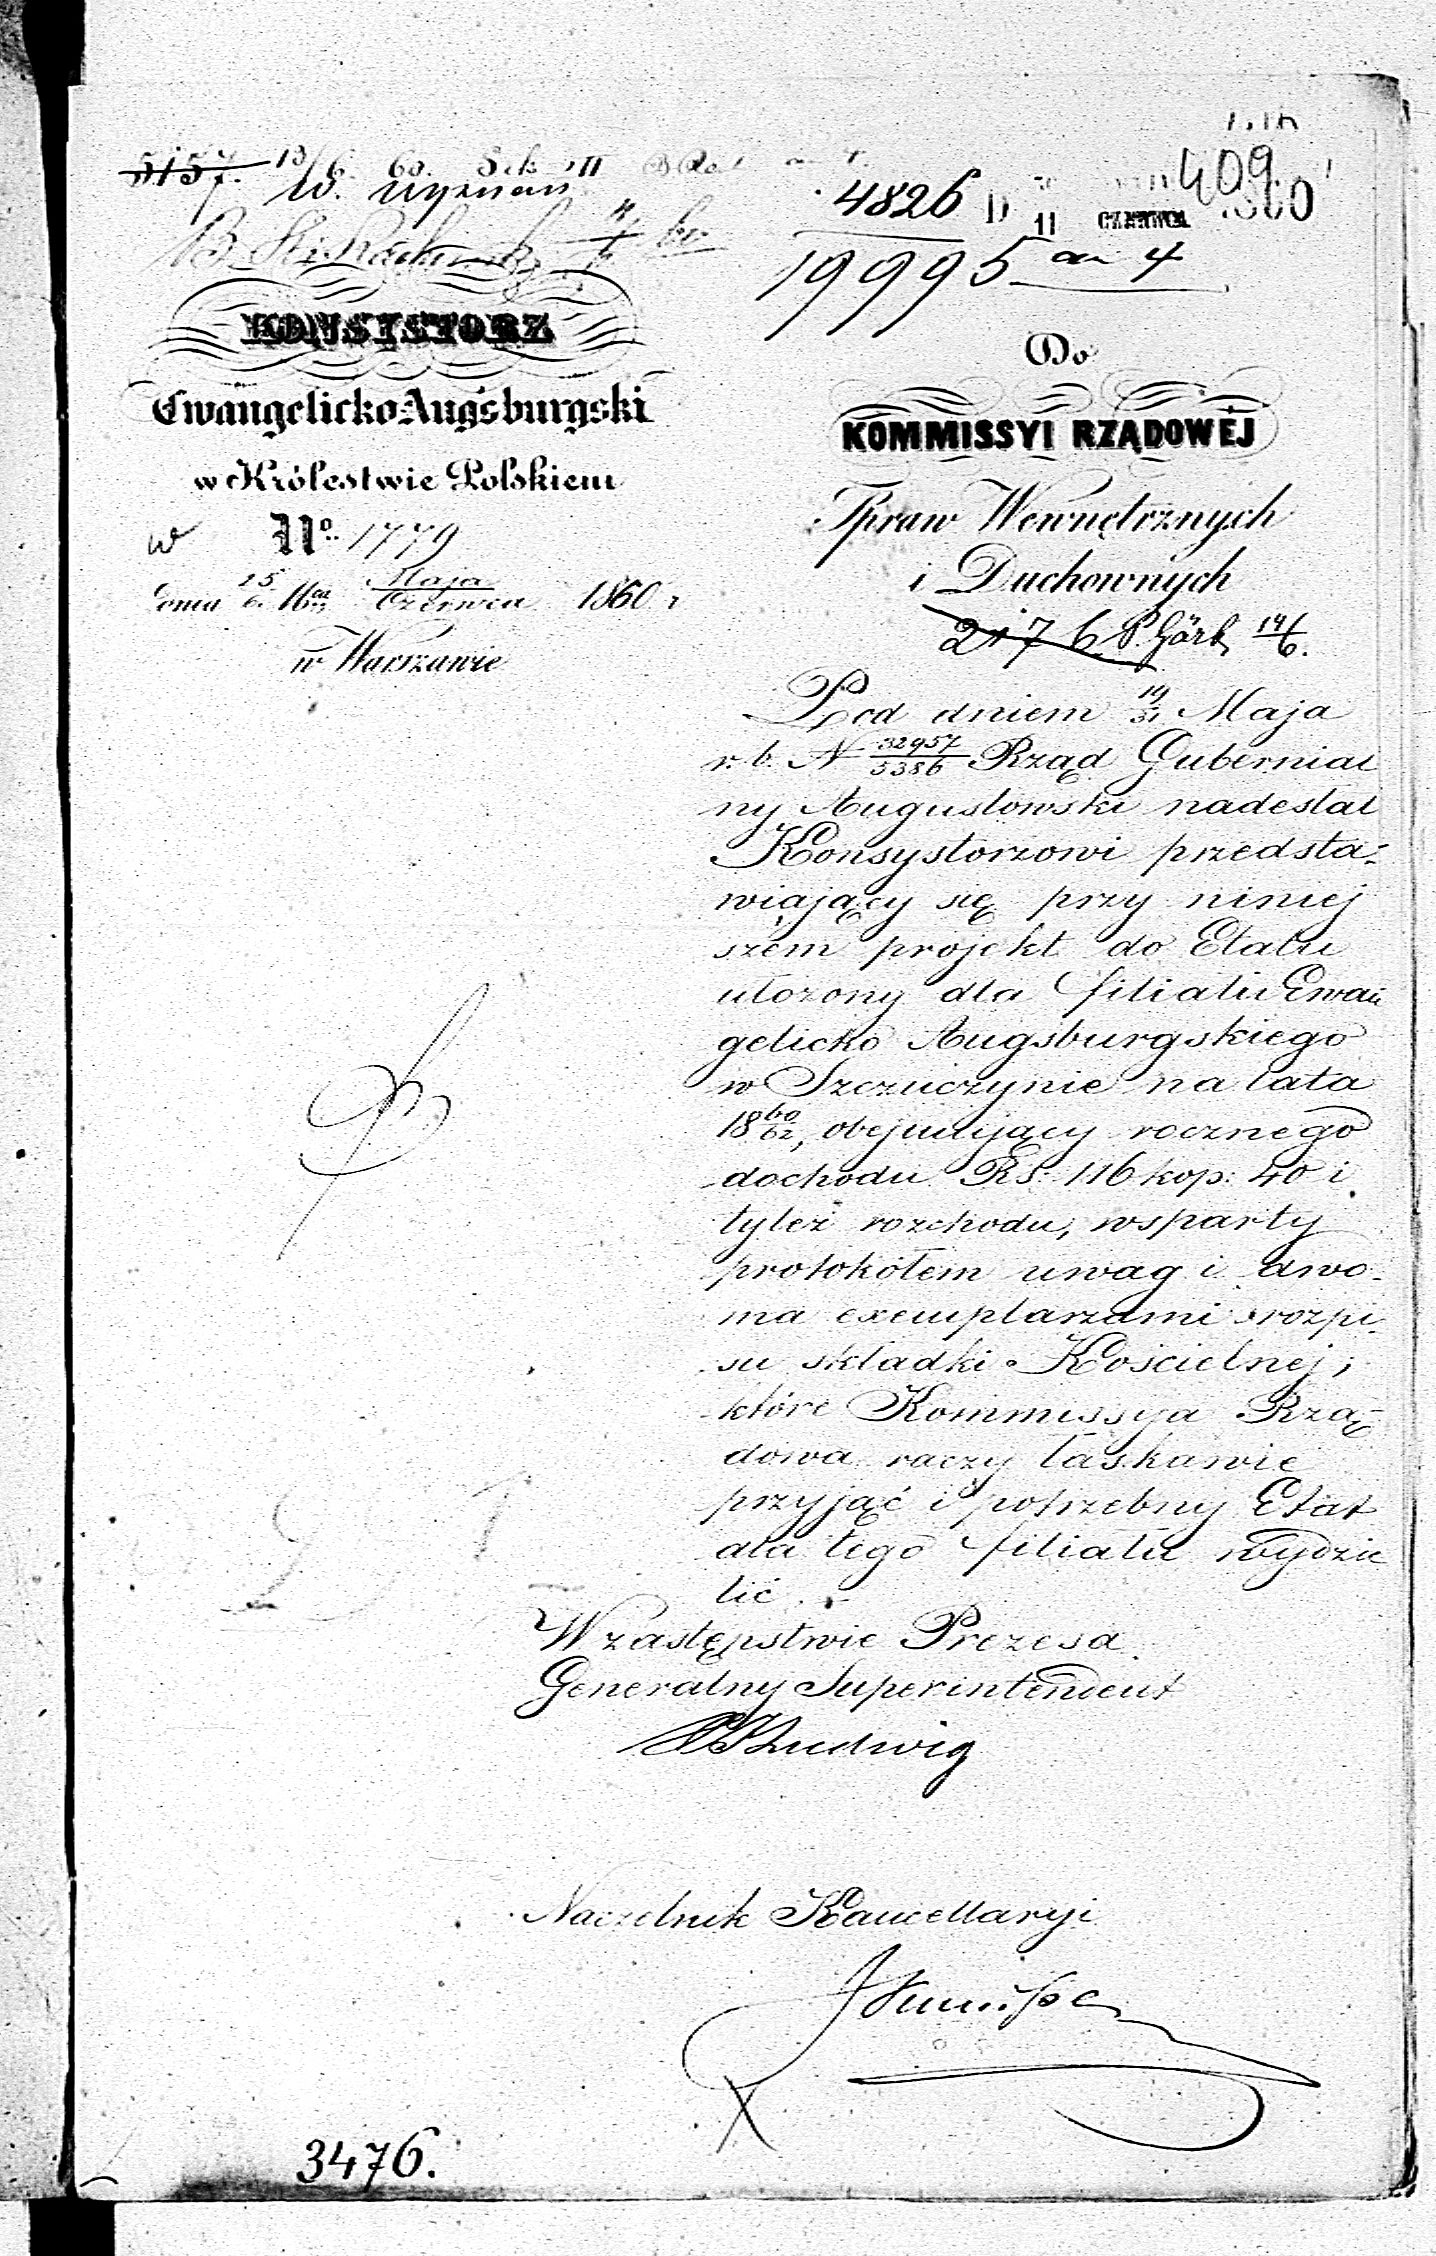 5157. 13/6 60. Sek III
W. Wyznań
4826 D 11 CZERWCA 1860
409
19995 an 4
KONSYSTORZ
Ewangelicko-Augsburgski
w Królestwie Polskiem
w No. 1779
dnia 25/6 Maja/Czerwca 1860 r
w Warszawie
Do
KOMMISSYI RZĄDOWÉJ
Spraw Wewnętrznych
i Duchownych
2176 P. Görk 14/6.
Pod dniem 19/31 Maja
r. b. N 32957/5386 Rząd Gubernial
ny Augustowski nadesłał
Konsystorzowi przedsta-
wiający się przy niniej
szém projekt do Etatu
ułożony dla filiału Ewan
gelicko Augsburgskiego
w Szczuczynie na lata
18 60/62, obejmujący rocznego
dochodu Rs. 116 kop: 40 i
tyleż rozchodu, wsparty
protokółem uwag i dwo-
ma exemplarzami rozpi
su składki Kościelnej;
które Kommissya Rzą-
dowa raczy łaskawie
przyjąć i potrzebny Etat
dla tego filiału wydzie
lić.
W zastępstwie Prezesa
Generalny Superintendent
Ludwig
Naczelnik Kancellaryi
3476.